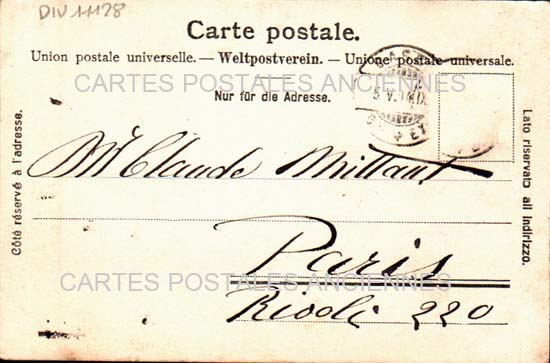 DIV 11128
Carte postale.
Union postale universelle. — Weltpostverein. — Unione postale universale.
CARTES POSTALES ANCIENNES
Nur für die Adresse.
Côté réservé à l'adresse.
Lato riservato all indirizzo.
Mr Claude Mittant
Paris
CARTES POSTALES ANCIENNES
Rivoli 220